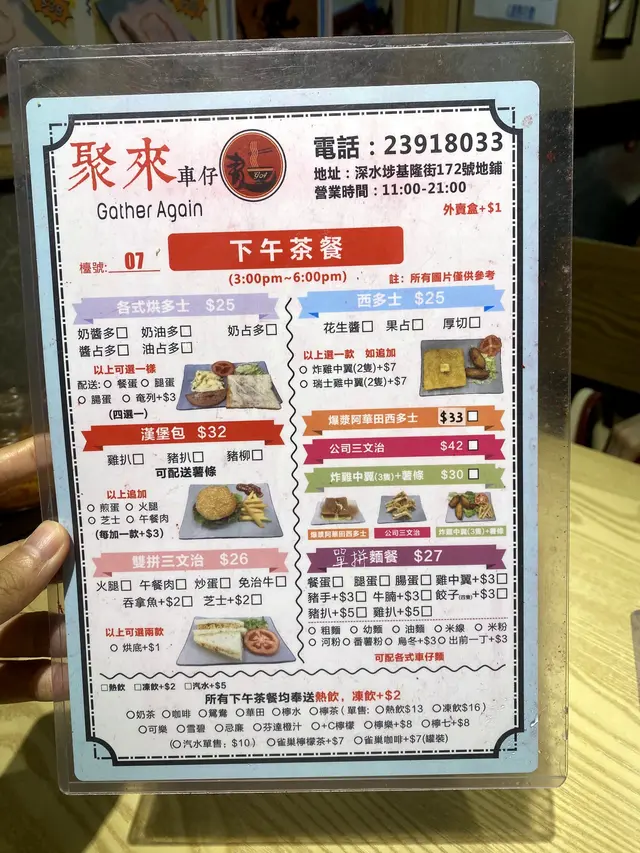 聚來車仔
Gather Again
電話：23918033
地址：深水埗基隆街172號地鋪
營業時間：11:00-21:00
外賣盒+$1
檯號: 07
下午茶餐
(3:00pm~6:00pm)
註：所有圖片僅供參考
各式烘多士 $25
奶醬多□ 奶油多□ 奶占多□
醬占多□ 油占多□
以上可選一樣
配送:○ 餐蛋○ 腿蛋
○ 腸蛋 ○ 奄列+$3
(四選一)
漢堡包 $32
雞扒□ 豬扒□ 豬柳□
可配送薯條
以上追加
○ 煎蛋 ○ 火腿
○ 芝士 ○ 午餐肉
(每加一款+$3)
雙拼三文治 $26
火腿□ 午餐肉□ 炒蛋□ 免治牛□
吞拿魚+$2□ 芝士+$2□
以上可選兩款
○ 烘底+$1
西多士 $25
花生醬□ 果占□ 厚切□
以上選一款 如追加
○ 炸雞中翼(2隻)+$7
○ 瑞士雞中翼(2隻)+$7
爆漿阿華田西多士 $33□
公司三文治 $42□
炸雞中翼(3隻)+薯條 $30□
爆漿阿華田西多士
公司三文治
炸雞中翼(3隻)+薯條
單拼麵餐 $27
餐蛋□ 腿蛋□ 腸蛋□ 雞中翼+$3□
豬手+$3□ 牛腩+$3□ 餃子(四隻)+$3□
豬扒+$5□ 雞扒+$5□
○ 粗麵 ○ 幼麵 ○ 油麵 ○ 米線 ○ 米粉
○ 河粉○ 番薯粉○ 烏冬+$3○ 出前一丁+$3
可配各式車仔麵
□熱飲 □凍飲+$2 □汽水+$5
所有下午茶餐均奉送熱飲，凍飲+$2
○奶茶 ○咖啡 ○鴛鴦 ○華田 ○檸水 ○檸茶(單售: ○熱飲$13 ○凍飲$16)
○可樂 ○雪碧 ○忌廉 ○芬達橙汁 ○+C檸檬 ○檸樂+$8 ○檸七+$8
(○汽水單售；$10) ○雀巢檸檬茶+$7 ○雀巢咖啡+$7(罐裝)